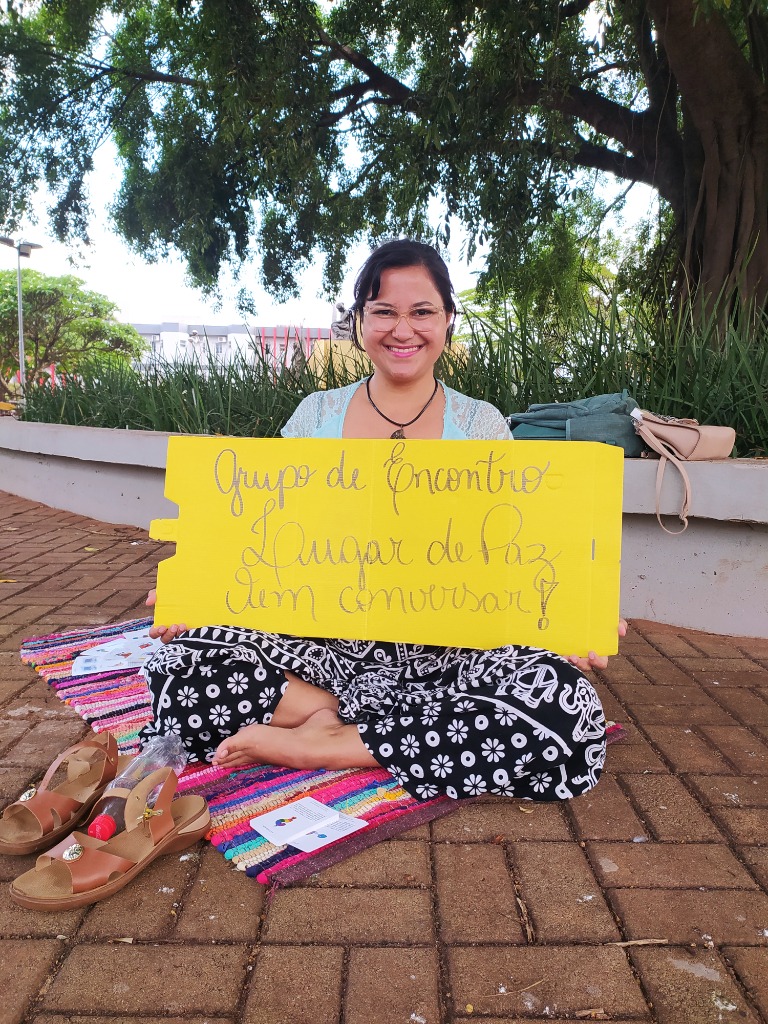 Grupo de Encontro
Lugar de Paz
Vem conversar!